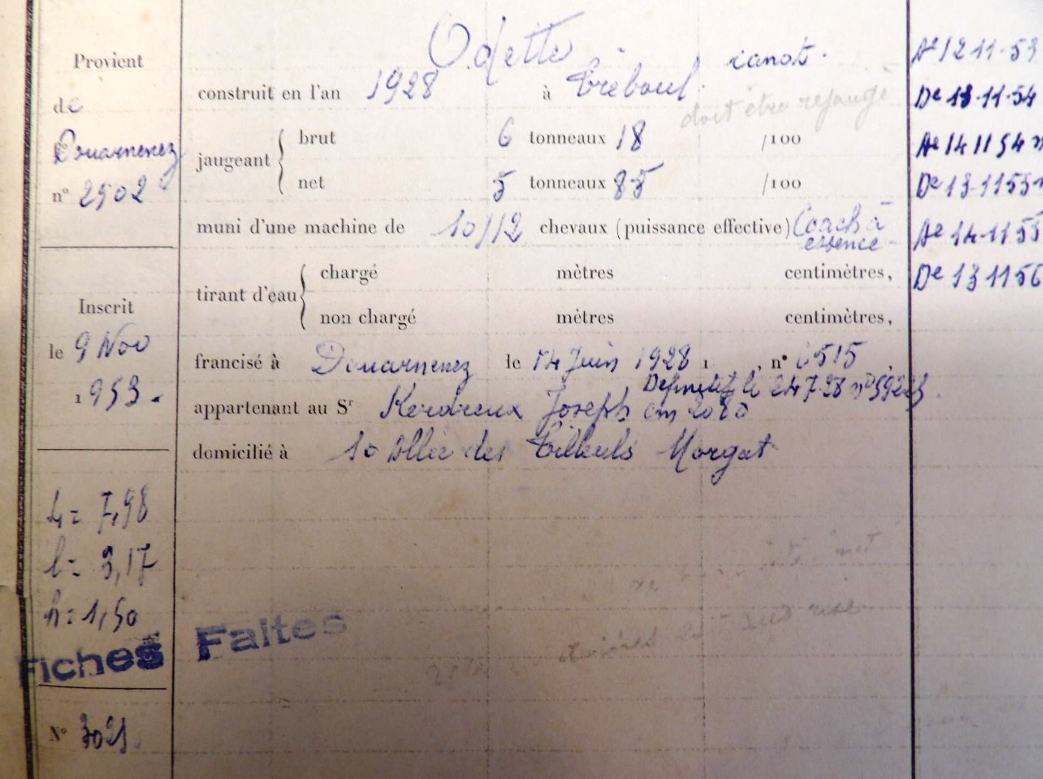 Provient
de
Douarnenez
n° 2502
Inscrit
le 9 Nov
1953.
L = 7,98
l = 3,17
h = 1,50
Fiches Faites
N° 3021
Odette canot.
construit en l'an 1928 à Tréboul
doit être rejaugé
jaugeant { brut 6 tonneaux 18 /100
net 5 tonneaux 85 /100
muni d'une machine de 10/12 chevaux (puissance effective) Coach à
essence
tirant d'eau { chargé mètres centimètres,
non chargé mètres centimètres,
francisé à Douarnenez le 14 Juin 1928 , n° 6515
Définitif le 24.7.28 n°
appartenant au Sr Kerdreux Joseph cm
domicilié à 10 Allée des Tilleuls Morgat
Ae 12-11-53
De 13-11-54
Ae 14 11 54
De 13-11 55
Ae 14-11 55
De 13 11 56